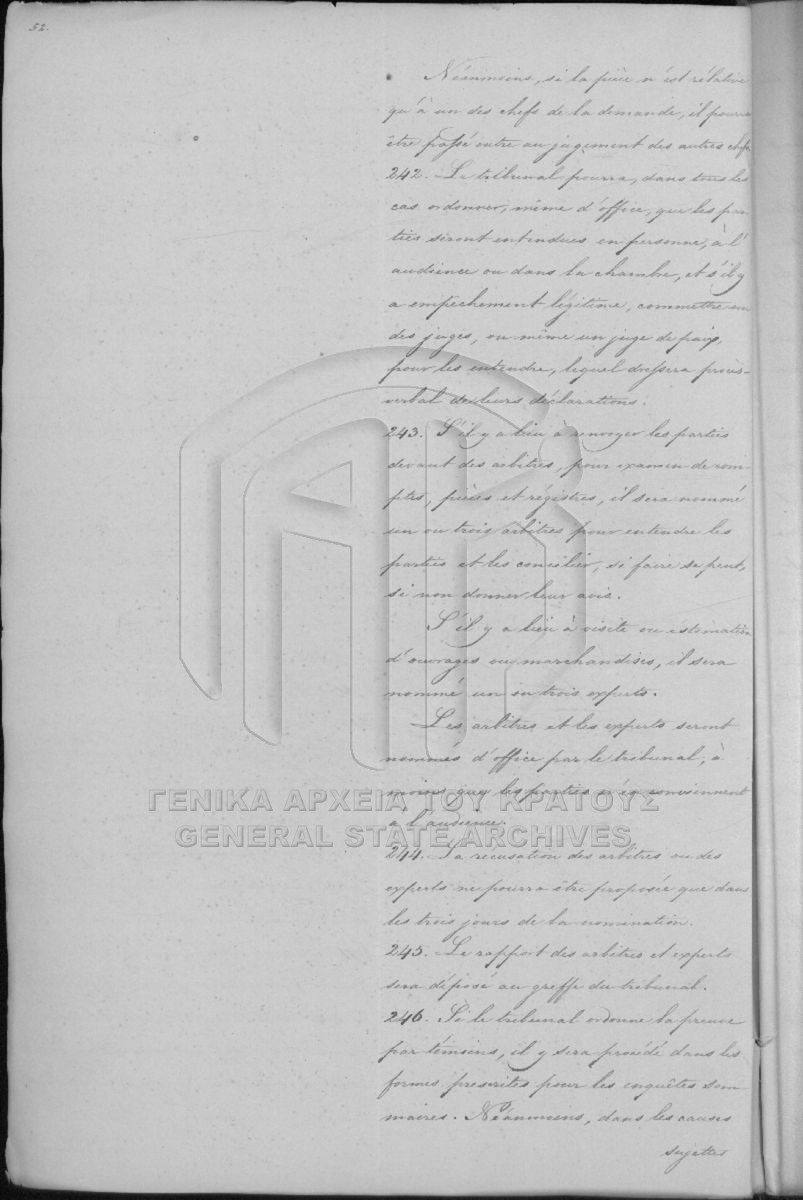 52.
Néanmoins, si la pièce n'est rélative
qu'à un des chefs de la demande, il pourra
être passé outre au jugement des autres chefs.
242. Le tribunal pourra, dans tous les
cas ordonner, même d'office, que les par
ties seront entendues en personne, à l'
audience ou dans la chambre, et s'il y
a empêchement légitime, commettre un
des juges, ou même un juge de paix,
pour les entendre, lequel dressera procès-
verbal de leurs déclarations.
243. S'il y a lieu à renvoyer les parties
devant des arbitres, pour examen de com-
ptes, pièces et régistres, il sera nommé
un ou trois arbitres pour entendre les
parties et les concilier, si faire se peut,
si non donner leur avis.
S'il y a lieu à visite ou estimation
d'ouvrages ou marchandises, il sera
nommé un ou trois experts.
Les arbitres et les experts seront
nommés d'office par le tribunal, à
moins que les parties n'en conviennent
a l'audience.
ΓΕΝΙΚΑ ΑΡΧΕΙΑ ΤΟΥ ΚΡΑΤΟΥΣ
GENERAL STATE ARCHIVES
244. La recusation des arbitres ou des
experts ne pourra être proposée que dans
les trois jours de la nomination.
245. Le rapport des arbitres et experts
sera déposé au greffe du tribunal.
246. Si le tribunal ordonne la preuve
par témoins, il y sera procédé dans les
formes prescrites pour les enquêtes som-
maires. Néanmoins, dans les causes
sujettes